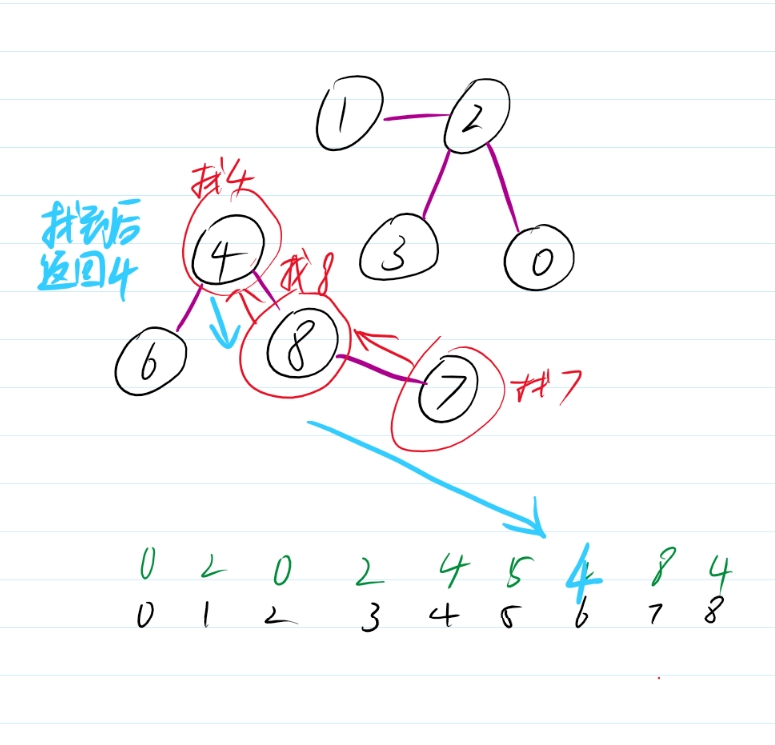 1 2
找4
找到后
返回4
4 找8 3 0
6 8 7 找7
0 2 0 2 4 5 4 8 4
0 1 2 3 4 5 6 7 8